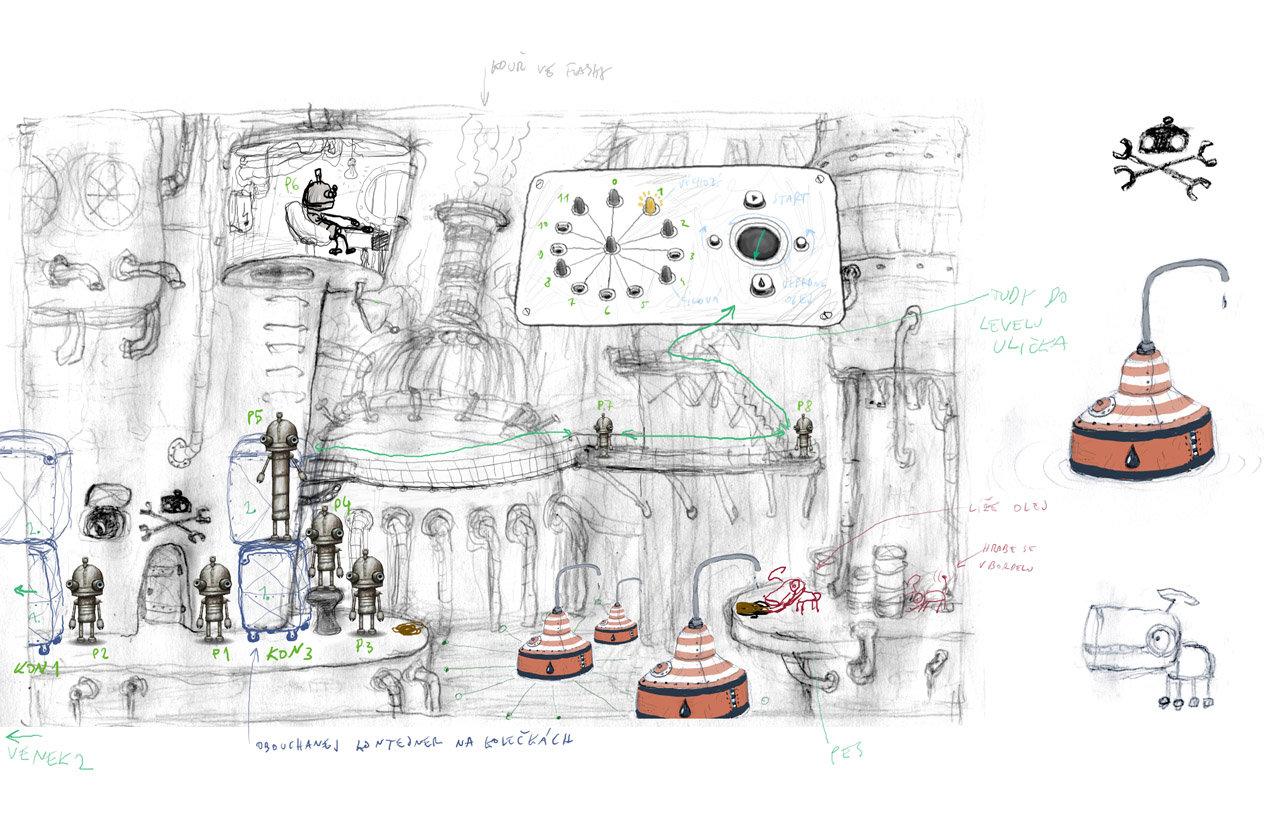 KOUŘ VE FLASHY
P6
11
0
1
10
2
9
3
8
4
7
6
5
START
TUDY DO
LEVELU
ULIČKA
P5
P7
P8
2.
2.
P4
LÍŽE OLEJ
HRABE SE
V BORDELU
1.
1.
P2
P1
P3
KON1
KON3
VENEK 2
OBOUCHANEJ KONTEJNER NA KOLEČKÁCH
PES